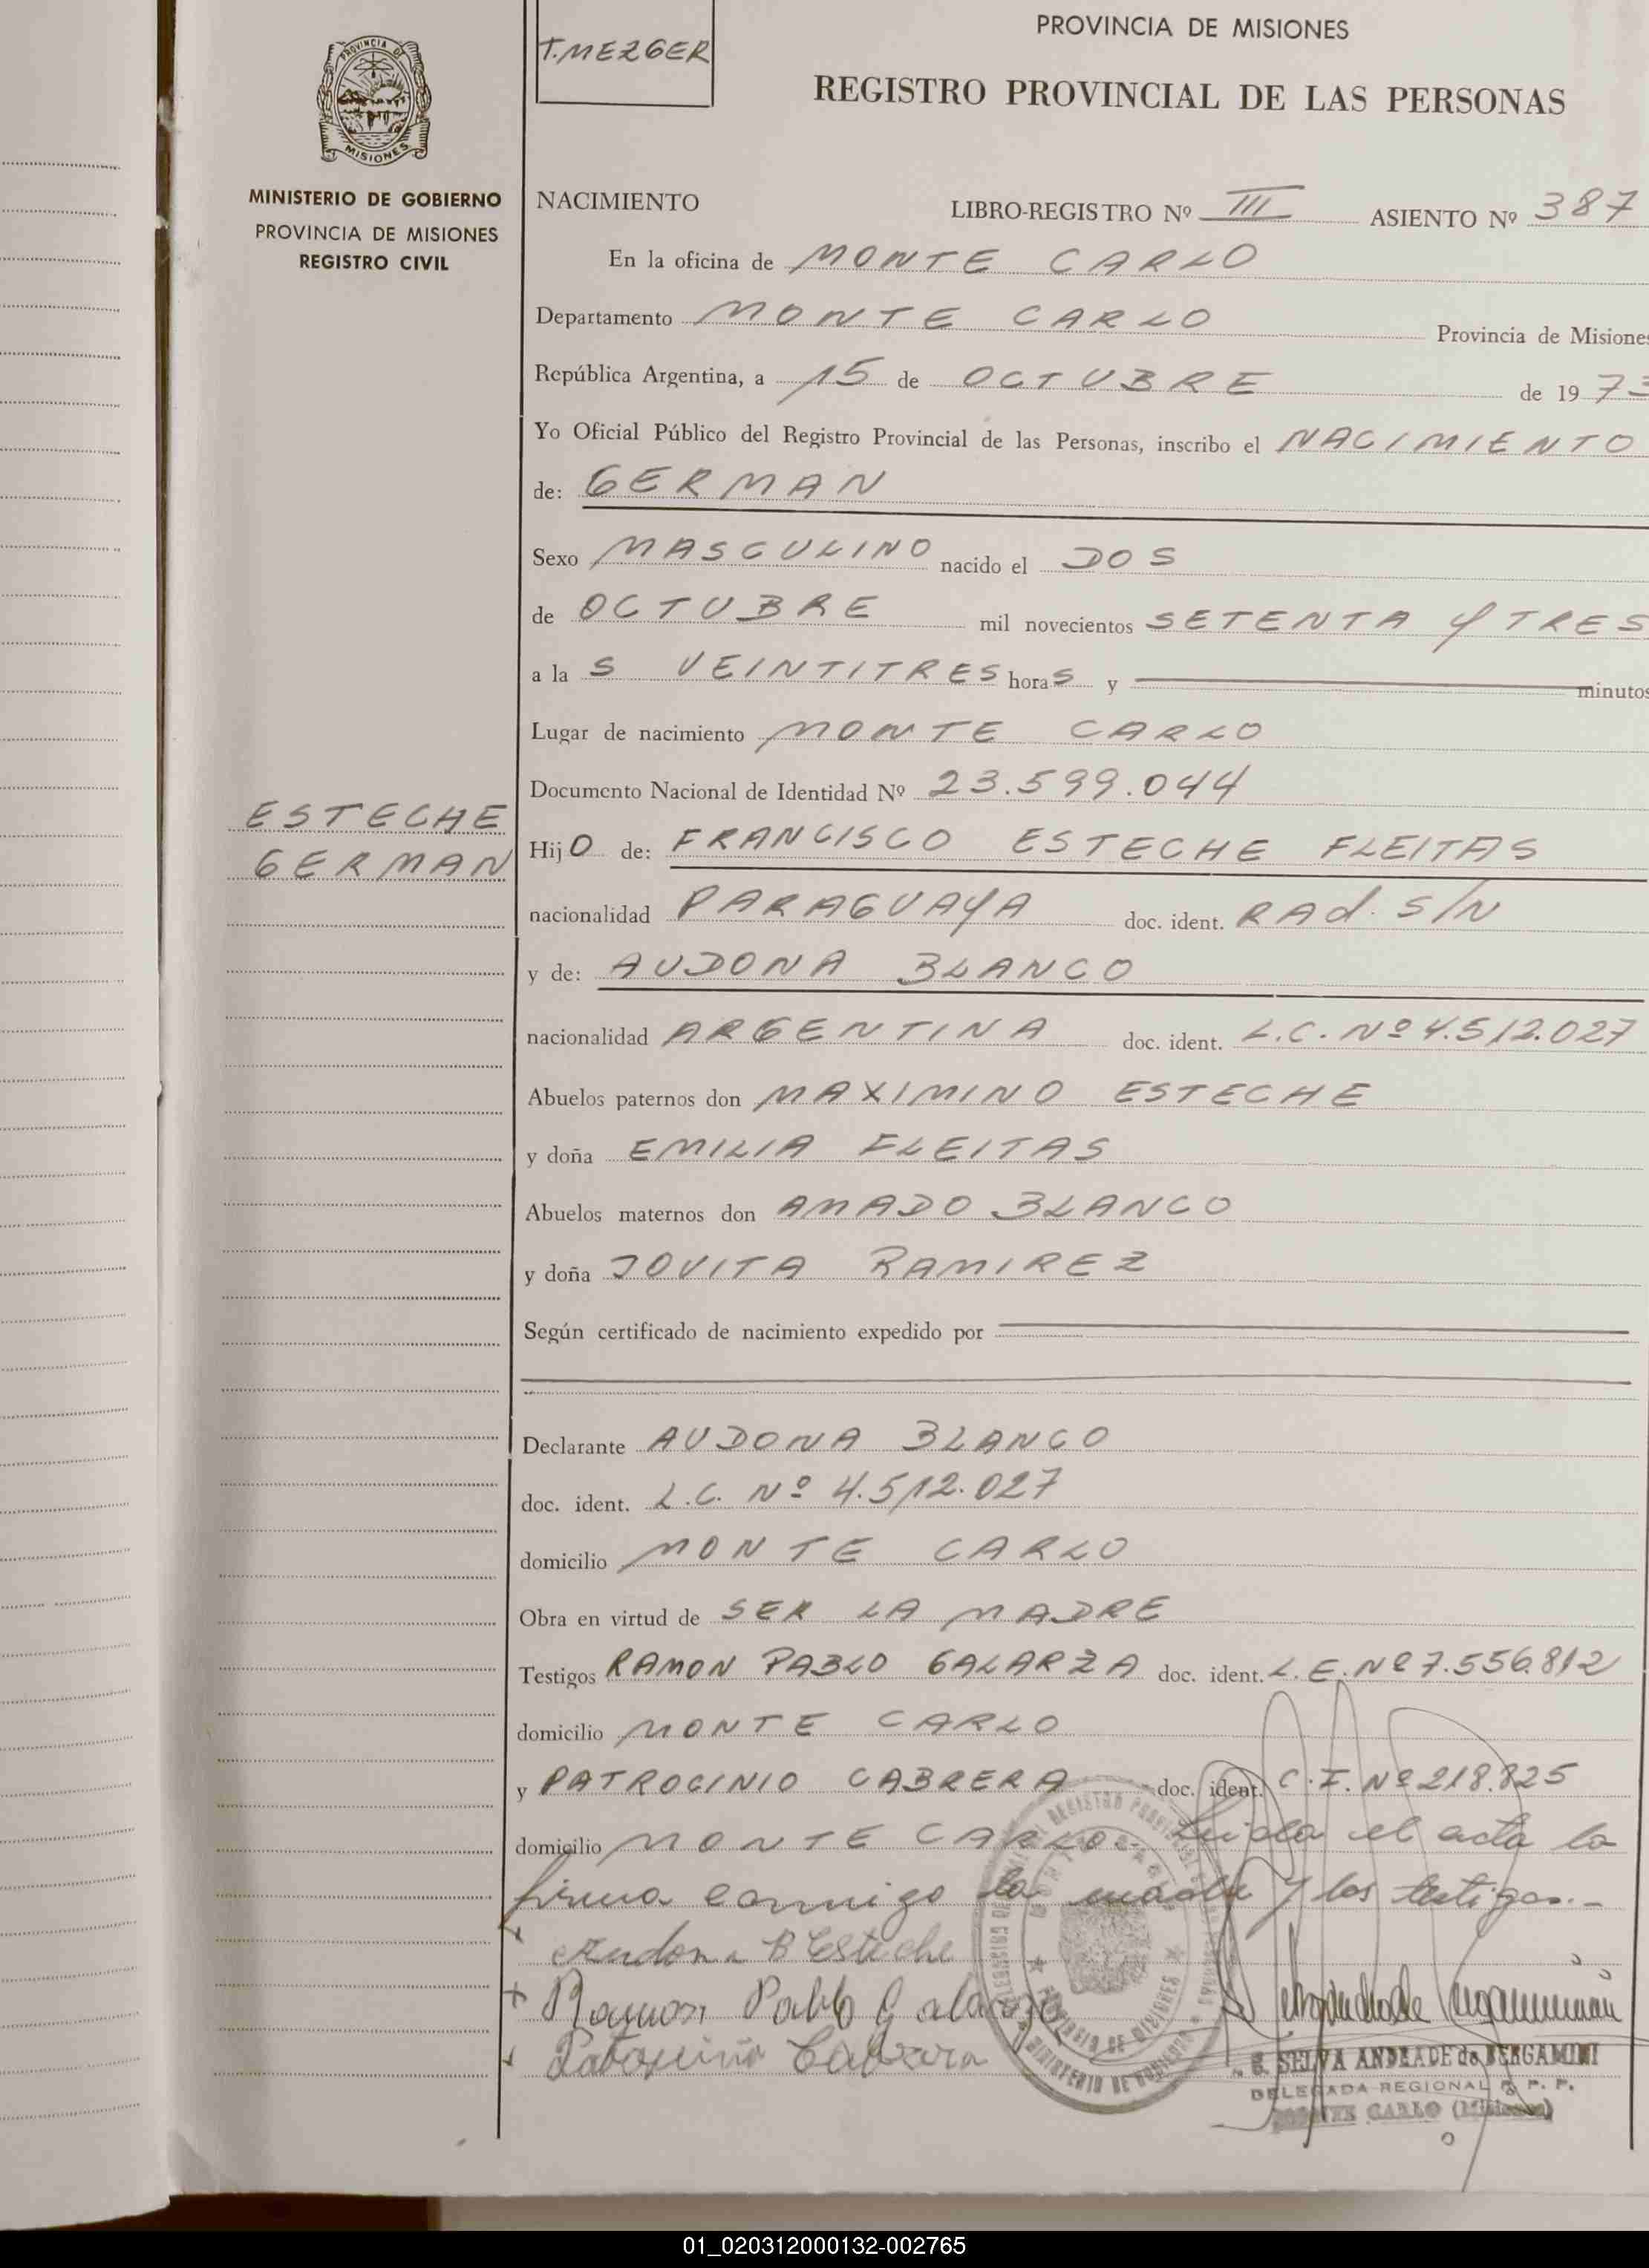 T. MEZGER
PROVINCIA DE MISIONES
REGISTRO PROVINCIAL DE LAS PERSONAS
PROVINCIA DE
MISIONES
MINISTERIO DE GOBIERNO
PROVINCIA DE MISIONES
REGISTRO CIVIL
NACIMIENTO LIBRO-REGISTRO Nº III ASIENTO Nº 387
En la oficina de MONTE CARLO
Departamento MONTE CARLO Provincia de Misiones
República Argentina, a 15 de OCTUBRE de 1973
Yo Oficial Público del Registro Provincial de las Personas, inscribo el NACIMIENTO
de: GERMAN
Sexo MASCULINO nacido el DOS
de OCTUBRE mil novecientos SETENTA Y TRES
a la S VEINTITRES horaS y minutos
Lugar de nacimiento MONTE CARLO
Documento Nacional de Identidad Nº 23.599.044
ESTECHE
GERMAN
HijO de: FRANCISCO ESTECHE FLEITAS
nacionalidad PARAGUAYA doc. ident. RAd. S/N
y de: AUDONA BLANCO
nacionalidad ARGENTINA doc. ident. L.C. Nº 4.512.027
Abuelos paternos don MAXIMINO ESTECHE
y doña EMILIA FLEITAS
Abuelos maternos don AMADO BLANCO
y doña JOVITA RAMIREZ
Según certificado de nacimiento expedido por
Declarante AUDONA BLANCO
doc. ident. L.C. Nº 4.512.027
domicilio MONTE CARLO
Obra en virtud de SER LA MADRE
Testigos RAMON PABLO GALARZA doc. ident. L.E. Nº 7.556.812
domicilio MONTE CARLO
y PATROCINIO CABRERA doc. ident. C.I. Nº 218.825
domicilio MONTE CARLO.- Leida el acta la
firma conmigo la madre y los testigos.-
Audona B Esteche
+ Ramon Pablo Galarza
Patrocinio Cabrera
S. SELVA ANDRADE de BERGAMINI
DELEGADA REGIONAL R. P. P.
MONTE CARLO (Misiones)
01_020312000132-002765